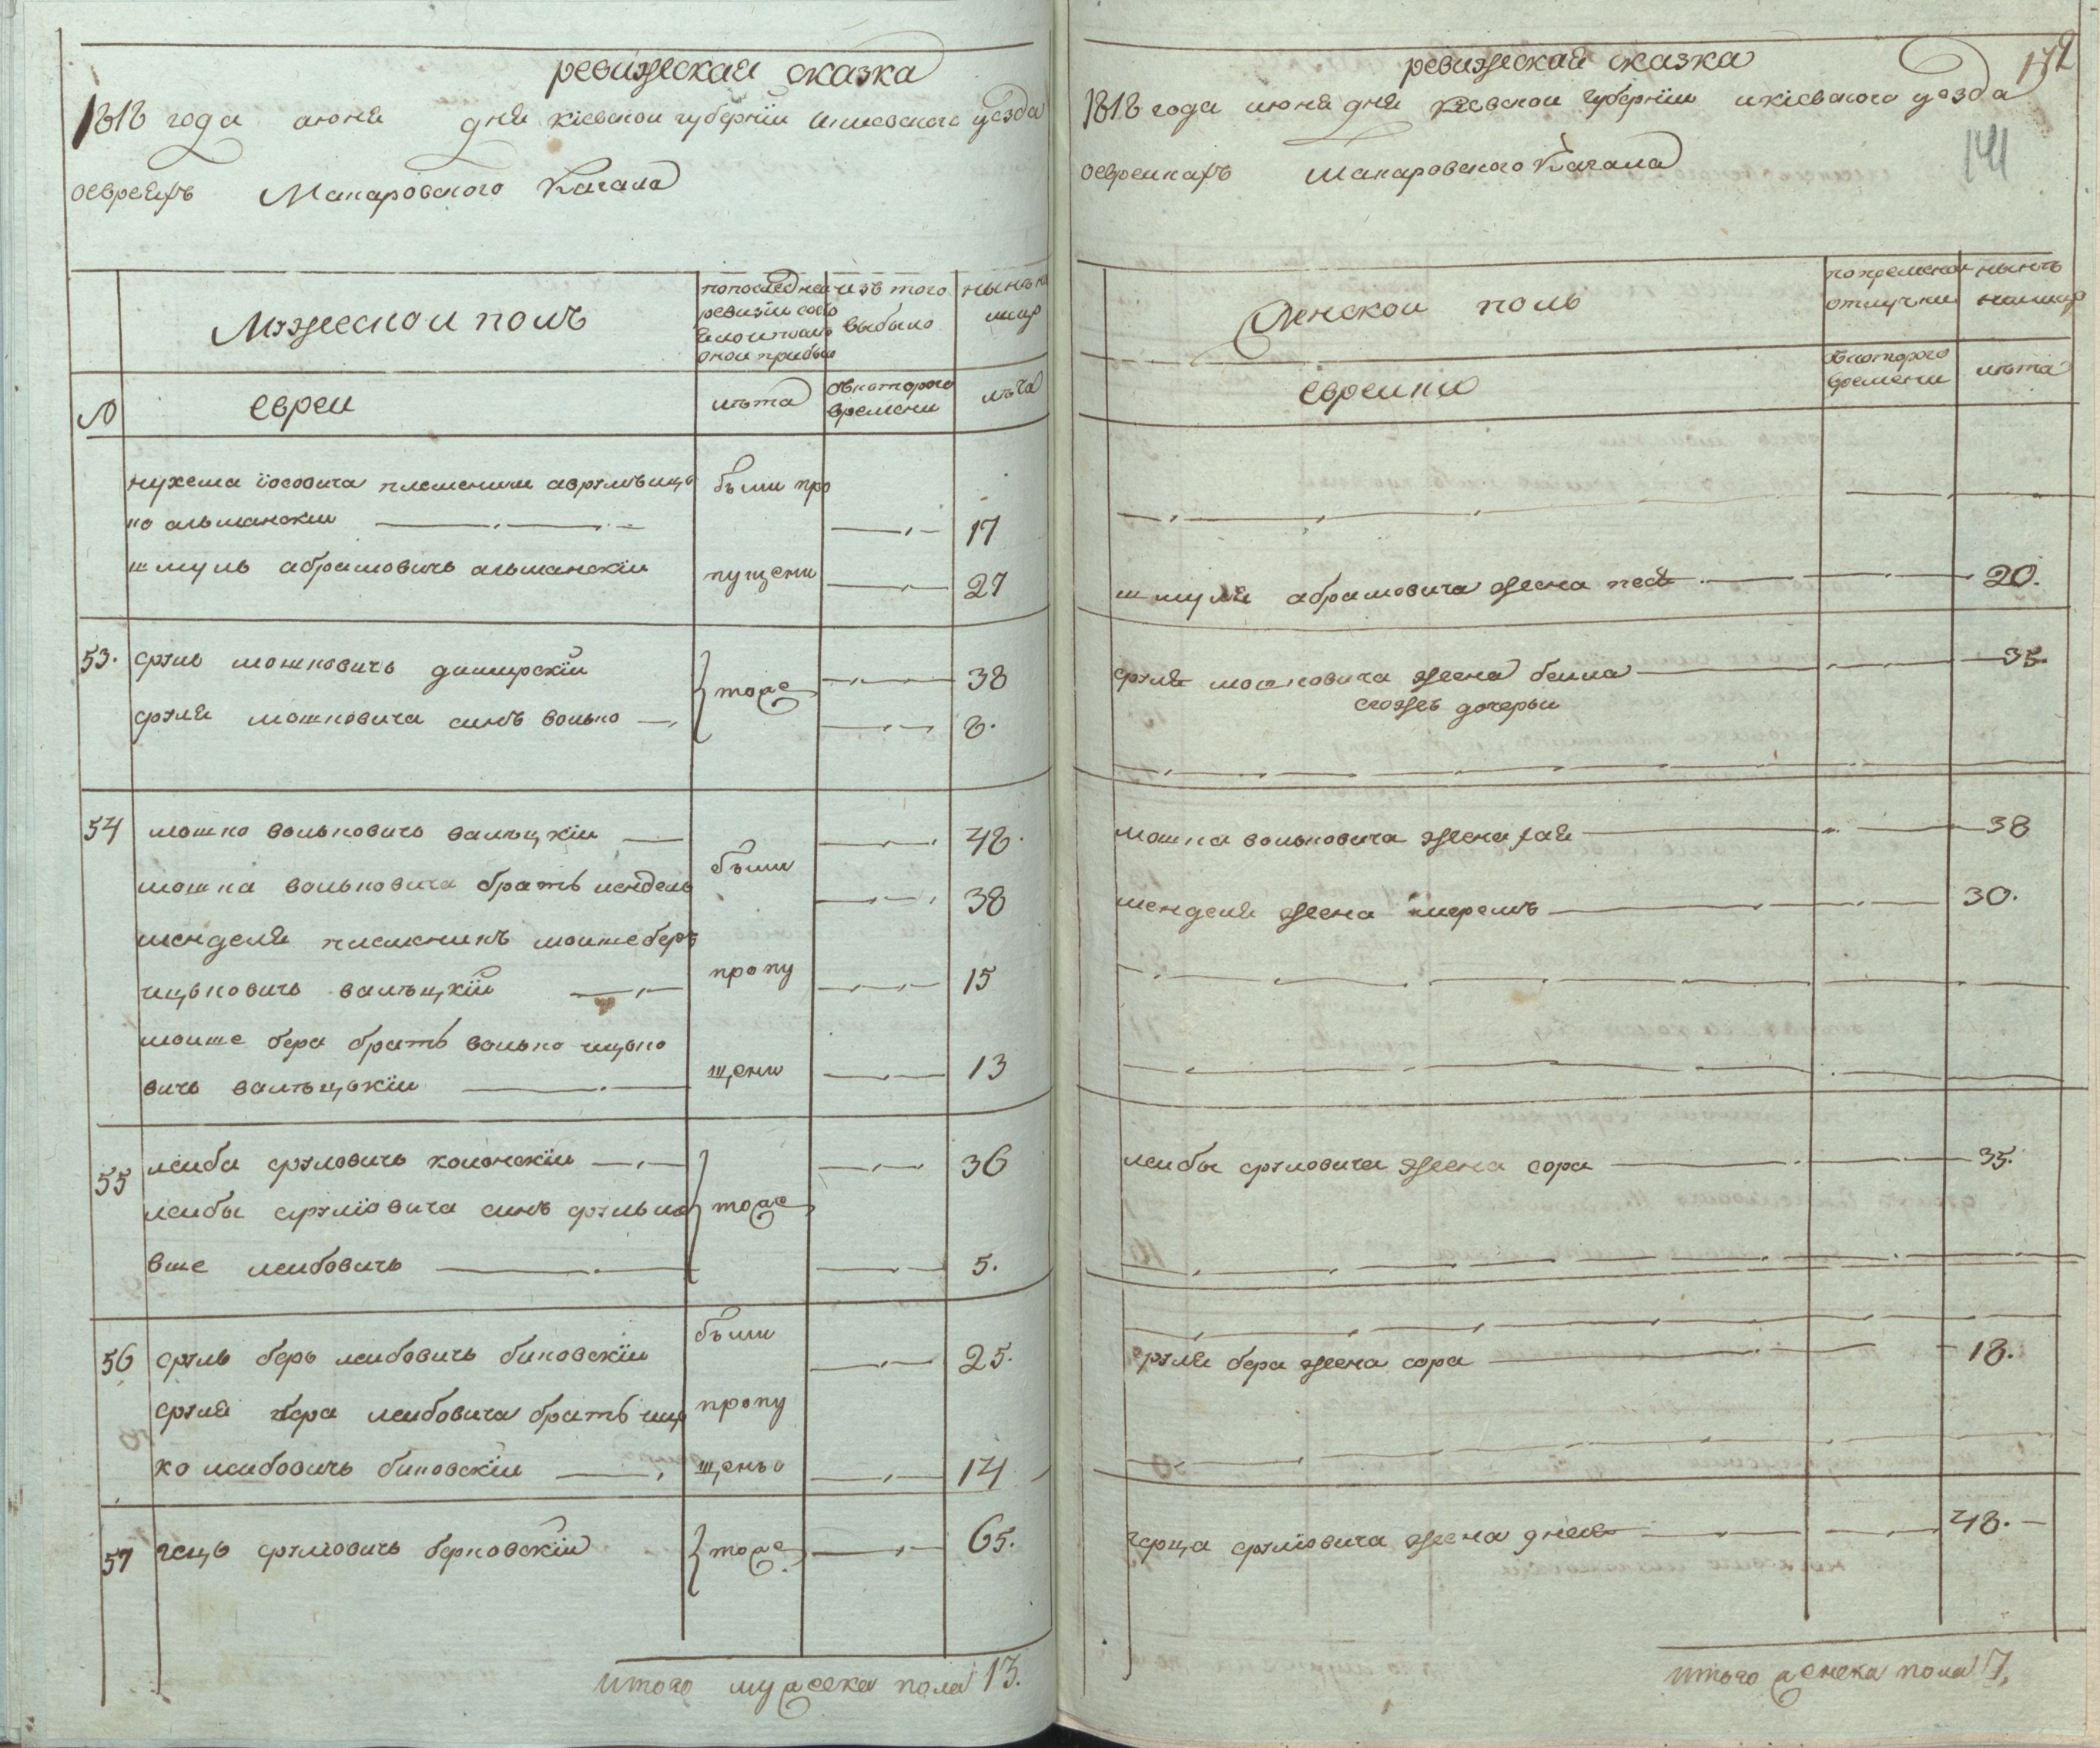 ревизская сказка
1818 года июня дня кіевской губерніи икиевского уезда
оевреяхъ Макаровского Кагала
Мужеской полъ
попоследней ревизіи состояло ипослѣ оной прибыло
изъ того выбыло
нынѣ на лицо
№
евреи
лѣта
съкоторого времени
лѣта
нухема іосовича племеники аврумъ ицъ
были про
ко альшанскіи 17
шмуль абрамовичь альшанскіи
пущени
27
53. сруль мошковичь димирскій
тоже
38
сруля мошковича синъ волько 8.
54 мошко вольковичь валѣцкіи 48.
были
мошка вольковича братъ мендель 38
менделя племеникъ моише беръ
ицьковичь валѣцкій
пропу
15
моише бера братъ волько ицько
вичь валѣцькіи
щени
13
55 леиба сруловичь колонскіи 36
леибы сруліовича синъ сруль ио
тоже
вше леибовичь 5.
были
56 сруль беръ леибовичь биковскіи 25.
сруля бера леибовича братъ ицъ
пропу
ко леибовичь биковскіи
щены
14
57 герць сруліовичь берковскій
тоже
65.
итого мужеска пола 13.
ревизская сказка
172
1818 года июня дня кіевской губерніи икіевского уезда
141
оевреикахъ Макаровского Кагала
Женской полъ
нынѣ налицо
евреики
съкоторого времени
лѣта
шмуля абрамовича жена песя 20.
сруля мошковича жена беила 35.
сложъ дочерьи
мошка вольковича жена хая 38
менделя жена меремъ 30.
леибы сруловича жена сора 35.
сруля бера жена сора 18.
герца сруліовича жена днея 48.
итого женска пола 7,